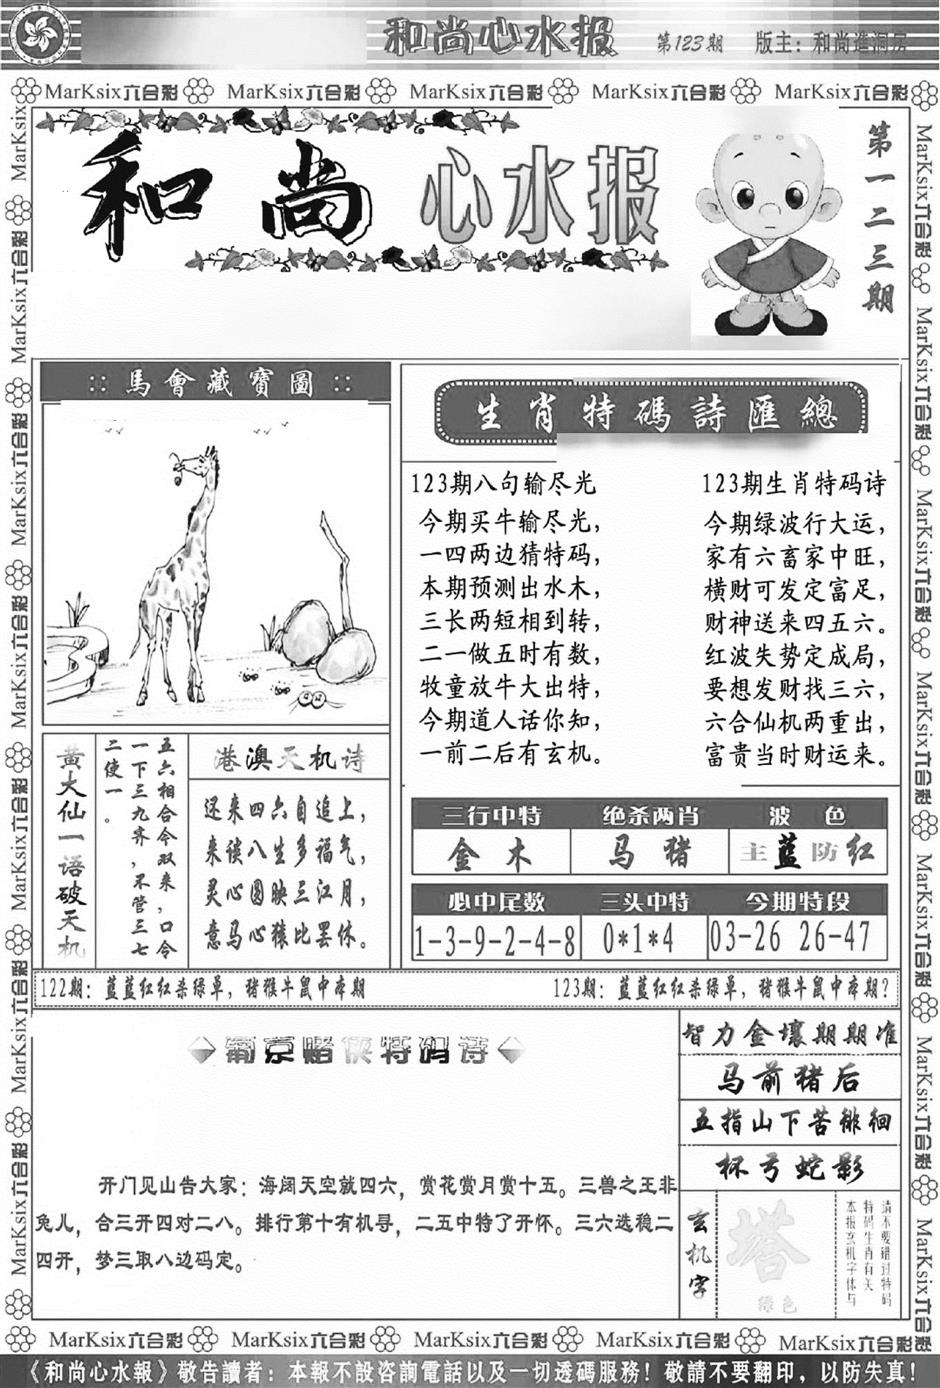 和尚心水报 第123期 版主：和尚进洞房
MarKsix六合彩 MarKsix六合彩 MarKsix六合彩 MarKsix六合彩 MarKsix六合彩
和尚心水报
第一二三期
馬會藏寶圖
生肖特碼詩匯總
123期八句输尽光
今期买牛输尽光，
一四两边猜特码，
本期预测出水木，
三长两短相到转，
二一做五时有数，
牧童放牛大出特，
今期道人话你知，
一前二后有玄机。
123期生肖特码诗
今期绿波行大运，
家有六畜家中旺，
横财可发定富足，
财神送来四五六。
红波失势定成局，
要想发财找三六，
六合仙机两重出，
富贵当时财运来。
黄大仙一语破天机
五六相合今双来，口令
一下三九齐，不管三七
二使一。
港澳天机诗
还来四六自追上，
来读八生多福气，
灵心圆映三江月，
意马心猿比罢休。
三行中特 绝杀两肖 波色
金木 马猪 主蓝防红
必中尾数 三头中特 今期特段
1-3-9-2-4-8 0*1*4 03-26 26-47
122期：蓝蓝红红杀绿单，猪猴牛鼠中本期
123期：蓝蓝红红杀绿单，猪猴牛鼠中本期？
葡京赌侠特码诗
开门见山告大家：海阔天空就四六，赏花赏月赏十五。三兽之王非
兔儿，合三开四对二八。排行第十有机寻，二五中特了开怀。三六选稳二
四开，梦三取八边码定。
智力金壤期期准
马前猪后
五指山下苦徘徊
杯弓蛇影
玄机字
塔
绿色
请不要错过特码
特码生肖有关
本报玄机字体与
MarKsix六合彩 MarKsix六合彩 MarKsix六合彩 MarKsix六合彩 MarKsix六合彩
《和尚心水報》敬告讀者：本報不設咨詢電話以及一切透碼服務！敬請不要翻印，以防失真！